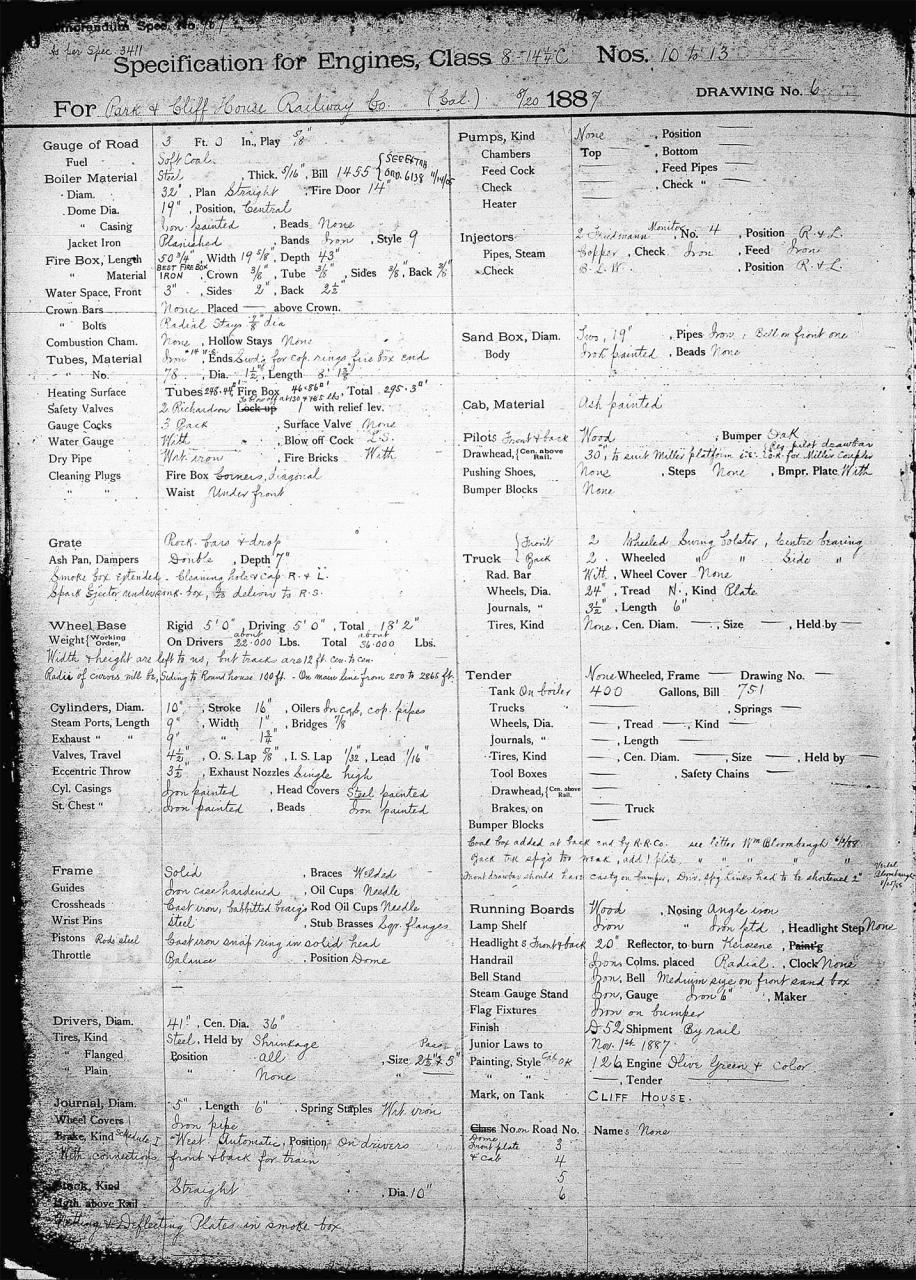 Memorandum Spec. No.
As per Spec. 3411
Specification for Engines, Class 8-14⅓C Nos. 10 to 13
For Park & Cliff House Railway Co. (Cal.) 8/20 1887
DRAWING No. 6
Gauge of Road 3 Ft. 0 In., Play 5/8"
Fuel Soft Coal
Boiler Material Steel, Thick. 5/16", Bill 1455 { SEE EXTRA ORD. 6138
Diam. 32", Plan Straight, Fire Door 14"
Dome Dia. 19", Position, Central
" Casing Iron painted, Beads None
Jacket Iron Planished, Bands Iron, Style 9
Fire Box, Length 50 3/4", Width 19 5/8", Depth 43"
" Material BEST FIRE BOX IRON, Crown 3/8", Tube 3/8", Sides 3/8", Back 3/8"
Water Space, Front 3", Sides 2", Back 2½"
Crown Bars None, Placed — above Crown.
" Bolts Radial Stays 7/8" dia
Combustion Cham. None, Hollow Stays None
Tubes, Material Iron, Ends Swd'g for cop. rings fire box end
" No. 78, Dia. 1½", Length 8'
Heating Surface Tubes, Fire Box 46.86", Total 295.3"
Safety Valves 2 Richardson Lock up 1 with relief lev.
Gauge Cocks 3 Back, Surface Valve None
Water Gauge With, Blow off Cock L.S.
Dry Pipe Wrt. iron, Fire Bricks With
Cleaning Plugs Fire Box Corners, diagonal
" " Waist Under front
Grate Rock. bars & drop
Ash Pan, Dampers Double, Depth 7"
Smoke box Extended. Cleaning hole & cap R. & L.
Spark Ejector under smk. box, deliver to R.S.
Wheel Base Rigid 5' 0", Driving 5' 0", Total 18' 2"
Weight { Working Order, On Drivers about 22.000 Lbs. Total about 36.000 Lbs.
Width & height are left to us, but track are 12 ft. cen. to cen.
Radii of curves will be, Siding to Round house 100 ft. - On main line from 200 to 2865 ft.
Cylinders, Diam. 10", Stroke 16", Oilers In cab, cop. pipes
Steam Ports, Length 9", Width 1", Bridges 7/8
Exhaust " " 9" " 1¾"
Valves, Travel 4½", O. S. Lap 5/8", I. S. Lap 1/32, Lead 1/16"
Eccentric Throw 3½", Exhaust Nozzles Single high
Cyl. Casings Iron painted, Head Covers Steel painted
St. Chest " Iron painted, Beads Iron painted
Frame Solid, Braces Welded
Guides Iron case hardened, Oil Cups Needle
Crossheads Cast iron, babbitted bearg's Rod Oil Cups Needle
Wrist Pins Steel, Stub Brasses Lgr. flanges
Pistons Rods steel Cast iron snap ring in solid head
Throttle Balance, Position Dome
Drivers, Diam. 41", Cen. Dia. 36"
Tires, Kind Steel, Held by Shrinkage
" Flanged Position all, Size 2½" x 5"
" Plain " None "
Journal, Diam. 5", Length 6", Spring Staples Wrt. iron
Wheel Covers Iron pipe
Brake, Kind Schedule I West. Automatic, Position, On drivers
With connections front & back for train
Stack, Kind Straight, Dia. 10"
Hgth. above Rail
Netting & Deflecting Plates in smoke box
Pumps, Kind None, Position —
Chambers Top —, Bottom —
Feed Cock —, Feed Pipes —
Check —, Check " —
Heater
Injectors 2 Friedmann Monitor, No. 4, Position R. & L.
Pipes, Steam Copper, Check Iron, Feed Iron
Check B. L. W., Position R. & L.
Sand Box, Diam. Two, 19", Pipes Iron; Bell on front one
Body Iron painted, Beads None
Cab, Material Ash painted
Pilots Front & back Wood, Bumper Oak
Drawhead, { Cen. above Rail. 30, to suit Miller platform for Miller Coupler
Reg. pilot drawbar
Pushing Shoes, None, Steps None, Bmpr. Plate With
Bumper Blocks None
Truck { Front 2 Wheeled Swing bolster, Centre bearing
Back 2 Wheeled " " Side "
Rad. Bar With, Wheel Cover None
Wheels, Dia. 24", Tread N., Kind Plate
Journals, " 3½", Length 6"
Tires, Kind None, Cen. Diam. —, Size —, Held by —
Tender None Wheeled, Frame — Drawing No. —
Tank On boiler 400 Gallons, Bill 751
Trucks —, Springs —
Wheels, Dia. —, Tread —, Kind —
Journals, " —, Length —
Tires, Kind —, Cen. Diam. —, Size —, Held by —
Tool Boxes —, Safety Chains —
Drawhead, { Cen. above Rail. —
Brakes, on — Truck
Bumper Blocks
Coal box added at back end by R.R.Co. see letter Wm Bloombaugh 6/2/88
Back trk spg's too weak, add 1 plate " " " "
Front drawbar should have casty on bumper, Driv. spg links had to be shortened 2"
Running Boards Wood, Nosing Angle iron
Lamp Shelf Iron " Iron ptd, Headlight Step None
Headlights Front & back 20" Reflector, to burn Kerosene, Paint'g
Handrail Iron, Colms. placed Radial, Clock None
Bell Stand Iron, Bell Medium size on front sand box
Steam Gauge Stand Iron, Gauge Iron 6", Maker
Flag Fixtures Iron on bumper
Finish D52 Shipment By rail
Junior Laws to Nov. 1st 1887
Painting, Style Cab OK 126, Engine Olive Green & Color
" " —, Tender —
Mark, on Tank CLIFF HOUSE.
Class No. on Road No. Names None
Dome
Front plate 3
& cab 4
5
6